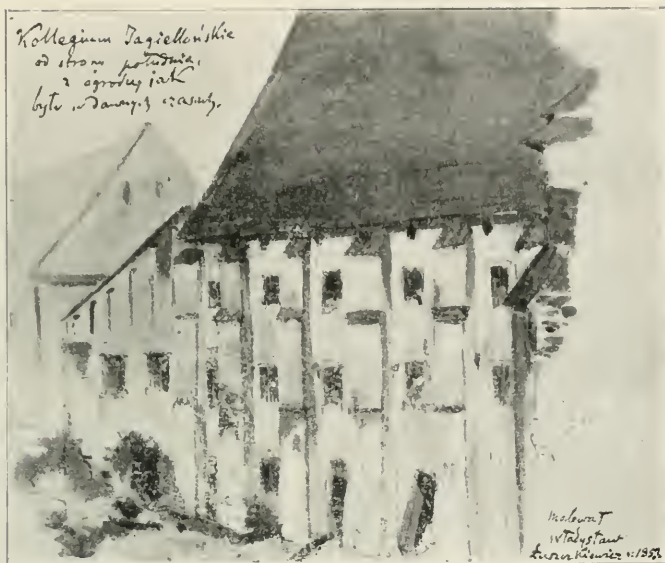 Kollegium Jagiellońskie
od strony południa,
z ogrodu, jak
było w dawnych czasach.
malował
Władysław
Łuszczkiewicz r.